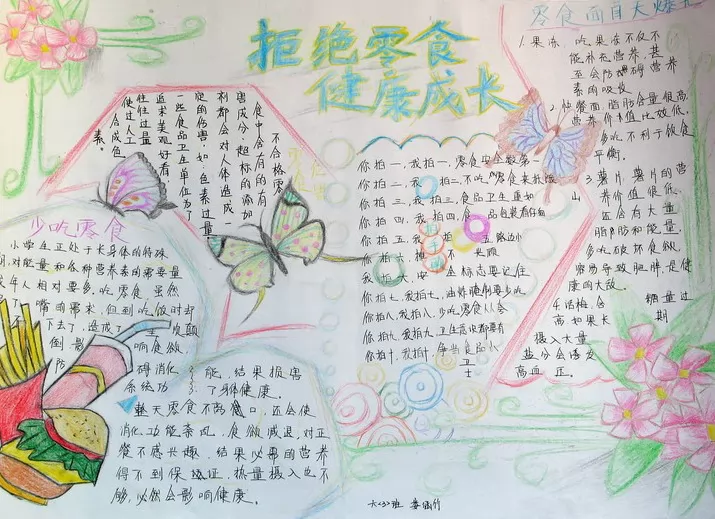 拒绝零食
健康成长
零食面目大爆
1.果冻、吃果冻不仅不
能补充营养,甚
至会防碍营养
素的吸收
面脂肪含量很高
营养价值比较低,
多吃不利于饮食
平衡。
3.薯片、薯片的营
养价值很低,
还会有大量
脂肪和能量,
多吃破坏食欲,
容易导致肥胖,是健
康的大敌。
4.话梅、含
糖量过
高如果长
期
摄入大量
盐分会诱发
高血压。
不合格零
食中含有的有
害成分,超标的添加
剂都会对人体造成一
定的伤害,如色素过量
一些食品卫生单位为了
追求美观好看,
往往过量
使过人工
合成色
素。
少吃零食
小学生正处于长身体的特殊
期,对能量和各种营养素的需要量
成年人相对要多,吃零食,虽然
了嘴的需求,但到吃饭时却
下去了,造成了
颠
倒,影
响食欲
防
碍消化
系统功
能,结果损害
了身体健康。
整天零食不离口,还会使
消化功能紊乱,食欲减退,对正
餐不感兴趣,结果必需的营养
得不到保证,热量摄入也不
够,必然会影响健康。
你拍一,我拍一,零食安全数第一
你拍二,我拍二,不吃零食来
你拍三,我拍三,食品卫生重如
山
你拍四,我拍四,食品包装看仔细
你拍五,我拍五,
边
你拍六,
你拍六,我
坐标志要记住
你拍七,我拍七,油炸腌制要少吃
你拍八,我拍八,少吃零食人人
你拍九,我拍九,卫生
都要有
你拍十,我拍十,争当食品小
卫
士
六<3>班